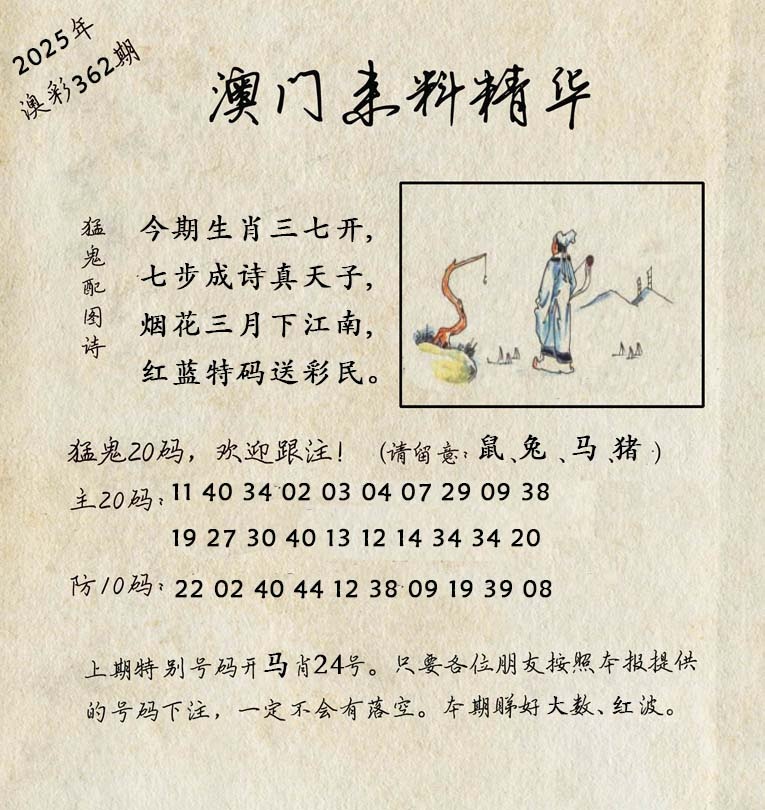 2025年
澳彩362期
澳门来料精华
猛鬼配图诗
今期生肖三七开，
七步成诗真天子，
烟花三月下江南，
红蓝特码送彩民。
猛鬼20码，欢迎跟注！（请留意：鼠、兔、马、猪）
主20码：11 40 34 02 03 04 07 29 09 38
19 27 30 40 13 12 14 34 34 20
防10码：22 02 40 44 12 38 09 19 39 08
上期特别号码开马肖24号。只要各位朋友按照本报提供
的号码下注，一定不会有落空。本期睇好大数、红波。